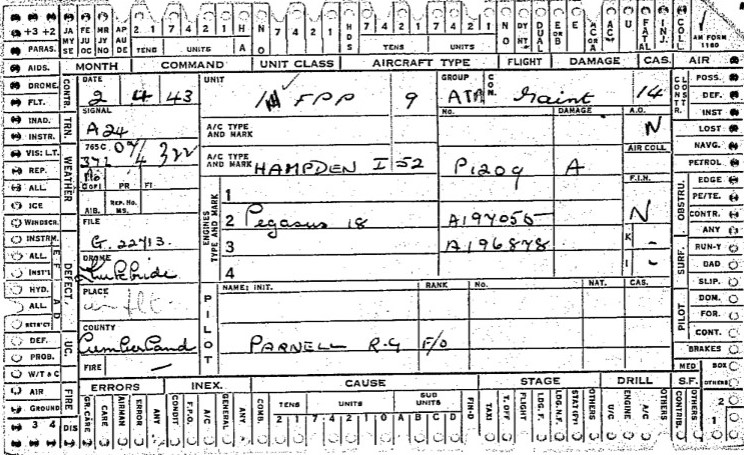 +3 +2 JA FE MR AP 2 7 4 2 1 H N 7 4 2 1 7 4 2 1 N DY DUAL E E AC U FATAL INJ. COLL.
PARAS. MY JU JY AU TENS UNITS A O HDS TENS UNITS A O NT or B AC or A AC AM FORM
SE OC NO DE 1180
AIDS. MONTH COMMAND UNIT CLASS AIRCRAFT TYPE FLIGHT DAMAGE CAS. AIR
DRONE. CONTR. DATE UNIT GROUP CON. CONSTR. POSS.
FLT. 2 4 43 FPP 9 ATA Maint 14 DEF.
INAD. TRN. SIGNAL No. DAMAGE A.O. INST
INSTR. A24 A/C TYPE AND MARK N LOST
VIS: L.T. WEATHER 765C 07/4 322 AIR COLL NAVG.
REP. 372 A/C TYPE AND MARK HAMPDEN I 52 P1209 A PETROL
ALL COPI PR FI F.I.N. OBSTRU. EDGE
ICE A.I.B. REP. No. MS. ENGINES TYPE AND MARK 1 PE/TE.
WINDSCR. FILE 2 Pegasus 18 A197055 N CONTR.
INSTRM. DEFECT. G. 22713. 3 A196878 K - ANY
ALL. E F A D DROME 4 I - SURF. RUN-Y
INST'L Kirkbride BAD
HYD. PLACE PILOT NAME: INIT. RANK No. NAT. CAS. SLIP.
ALL. in flt PILOT DOM.
RETR'CT COUNTY FOR.
DEF. UC. Cumberland PARNELL R.G F/O CONT.
PROB. FIRE - BRAKES
W/T & C ERRORS INEX. CAUSE STAGE DRILL S.F. MED BOX
AIR FIRE GR. CARE CARE AIRMAN ERROR ANY CONDIT F.P.O. A/C GENERAL ANY. COMB. TENS UNITS SUB UNITS FIN-D TAXI T. OFF FLIGHT LDG. F. LDG. N.F. STAT(Y) OTHERS U/C ENGINE A/C OTHERS CONTRIB. OTHERS OTHERS 2
GROUND 2 1 7 4 2 1 0 A B C D 1
3 4 DIS